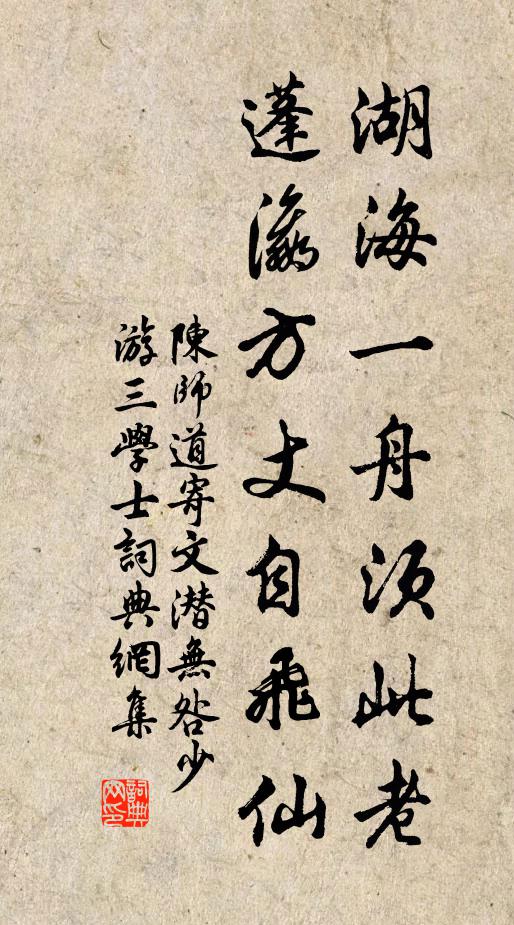 湖海一舟須此老
蓬瀛方丈自飛仙
陳師道寄文潛無咎少
游三學士詞典網集
詞典網印